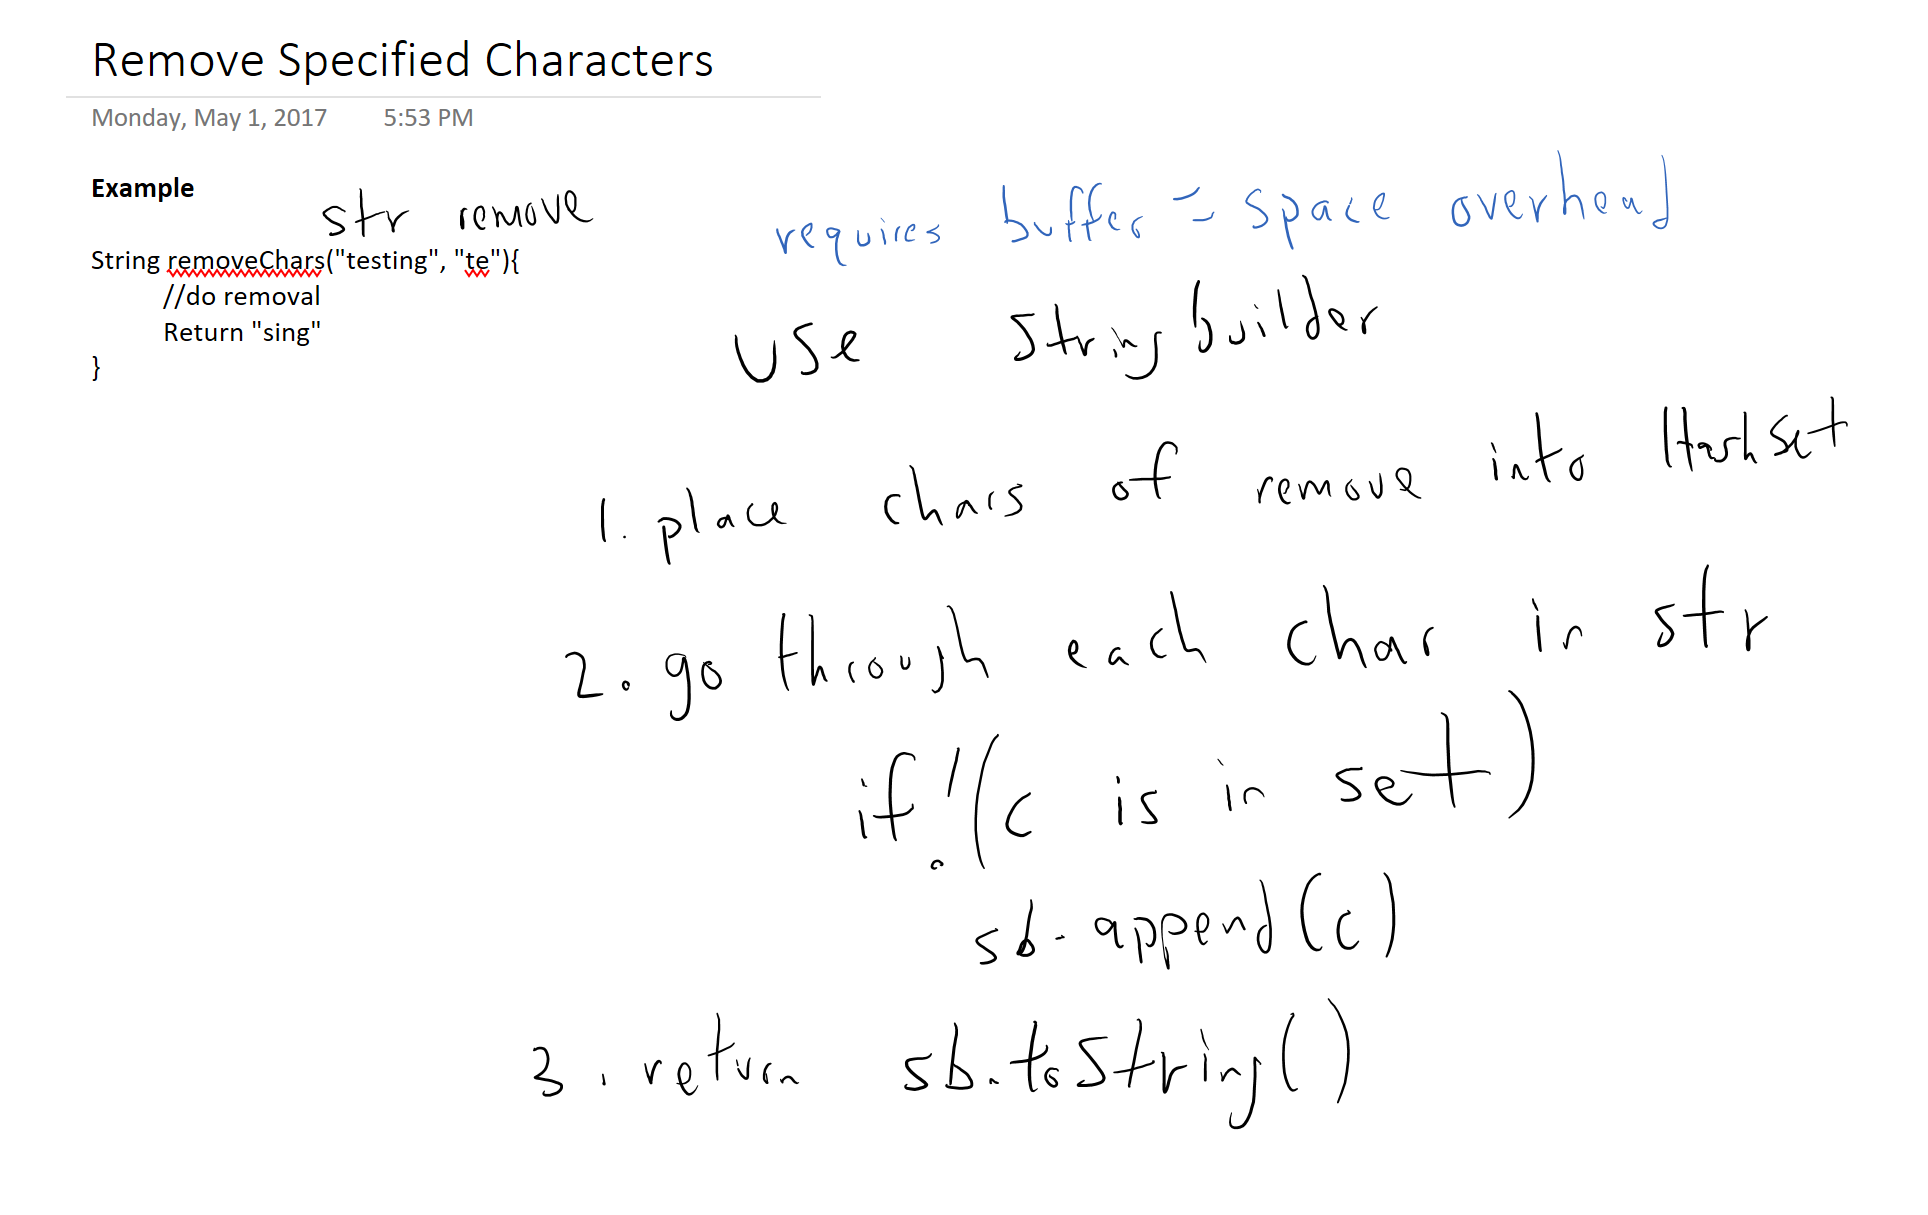 Remove Specified Characters
Monday, May 1, 2017 5:53 PM
Example
str remove
String removeChars("testing", "te"){
//do removal
Return "sing"
}
requires buffer = space overhead
use StringBuilder
1. place chars of remove into HashSet
2. go through each char in str
if !(c is in set)
sb.append(c)
3. return sb.toString()